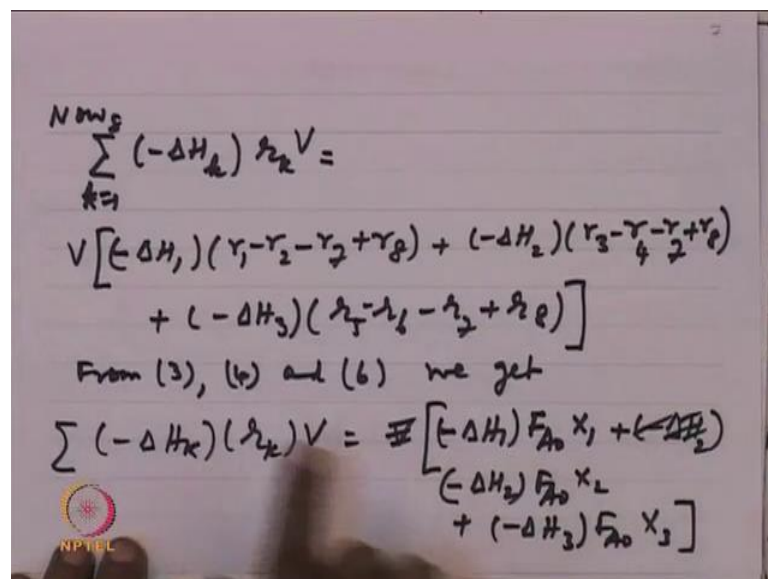 Now,
∑ (-ΔH_k) r_k V =
k=1
V[(-ΔH₁)(r₁-r₂-r₇+r₈) + (-ΔH₂)(r₃-r₄-r₇+r₈)
+ (-ΔH₃)(r₅-r₆-r₇+r₈)]
From (3), (4) and (6) we get
∑ (-ΔH_k)(r_k)V = [(-ΔH₁) F_A0 X₁ +
(-ΔH₂) F_A0 X₂
+ (-ΔH₃) F_A0 X₃]
NPTEL